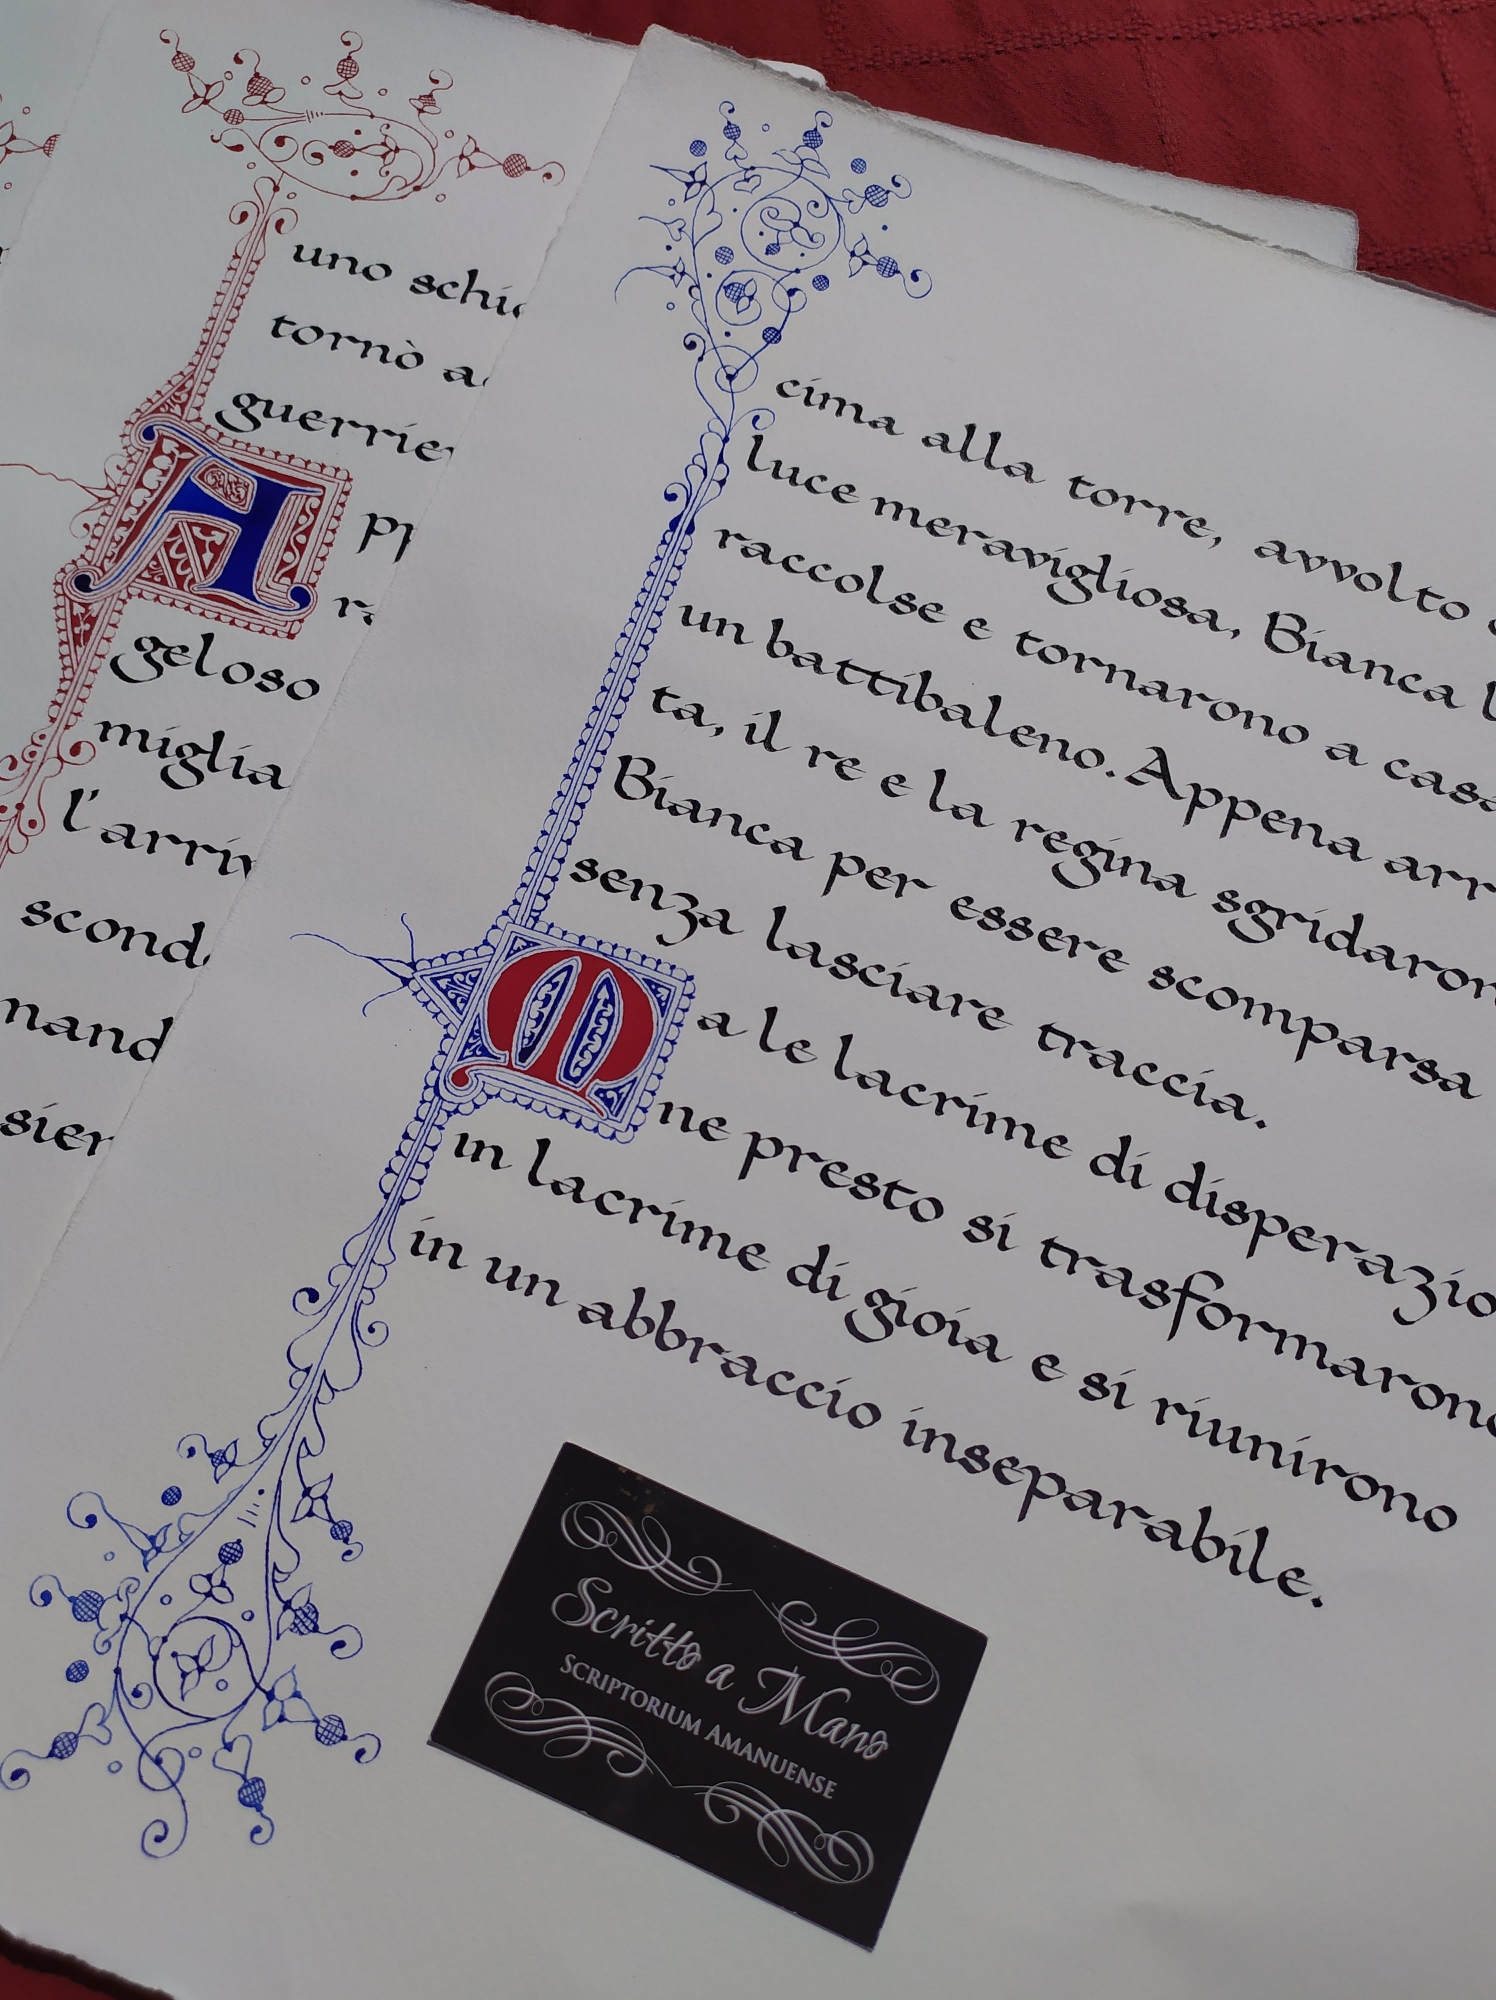 uno schi
tornò a
guerrie
A
pp
ra
geloso
miglia
l'arriv
scond
nand
sier
cima alla torre, avvolto
luce meravigliosa, Bianca l
raccolse e tornarono a casa
un battibaleno. Appena arr
ta, il re e la regina sgridaron
Bianca per essere scomparsa
senza lasciare traccia.
Ma le lacrime di disperazio
ne presto si trasformarono
in lacrime di gioia e si riunirono
in un abbraccio inseparabile.
Scritto a Mano
SCRIPTORIUM AMANUENSE